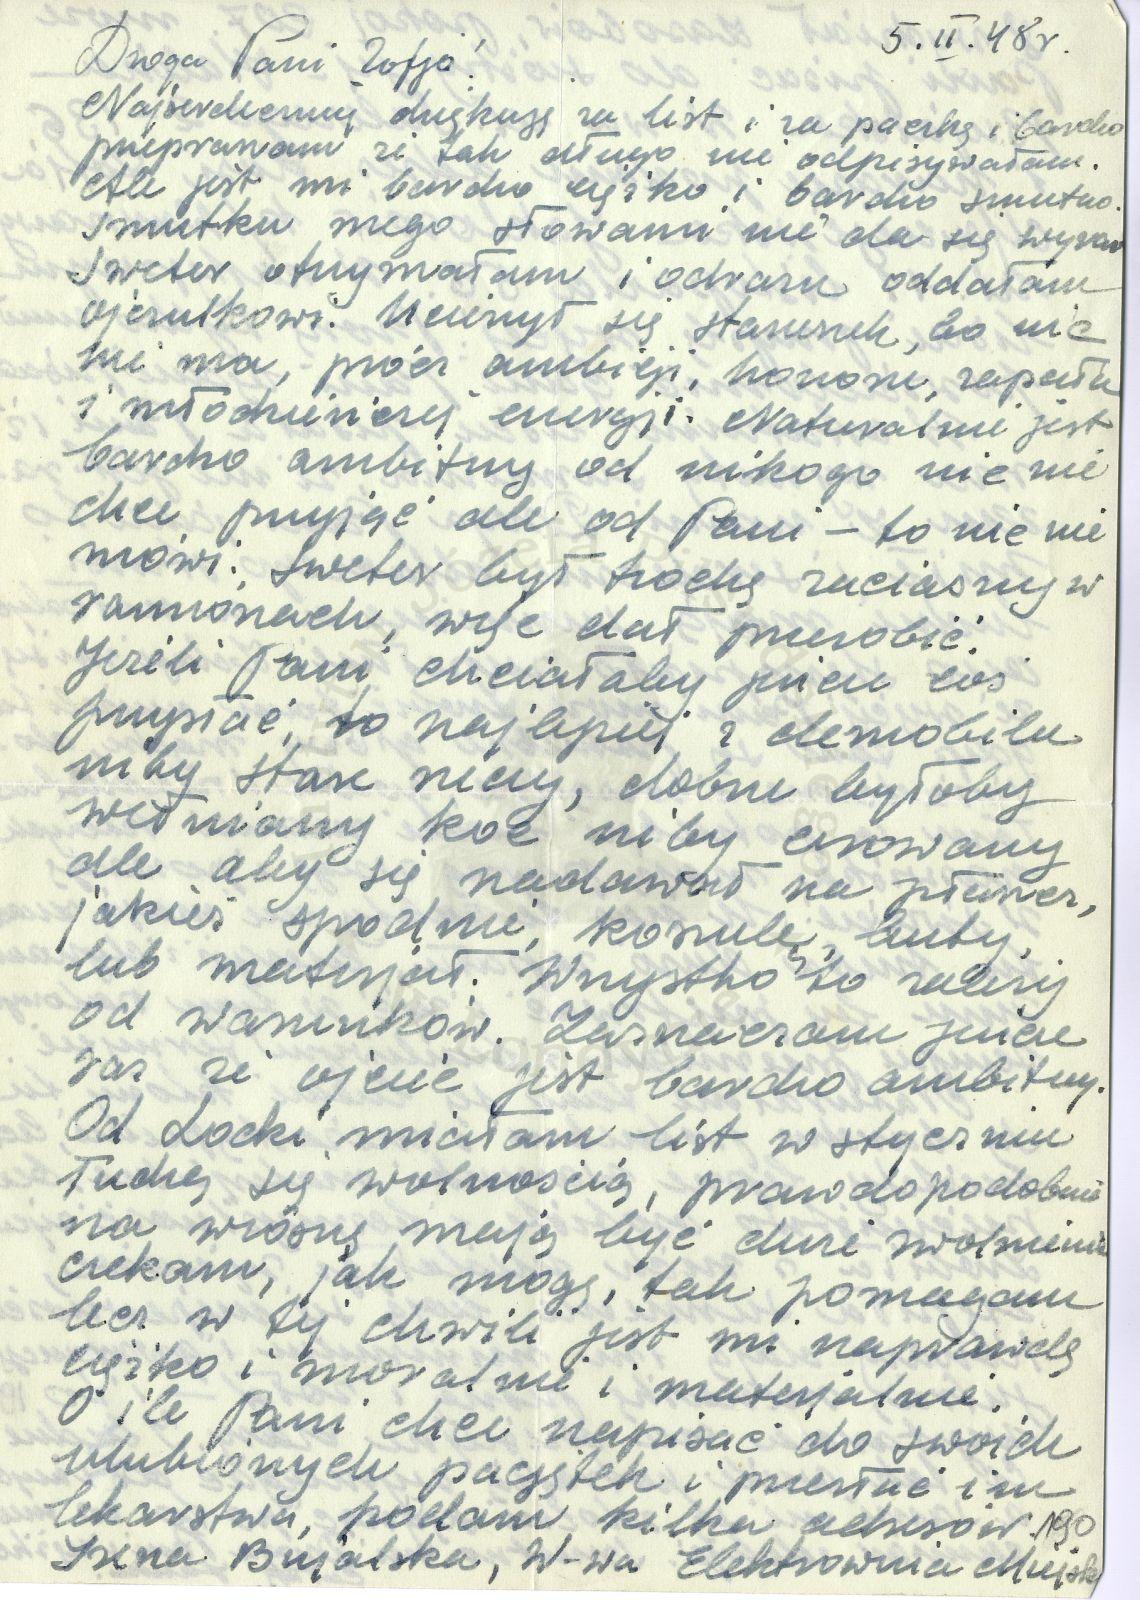 5.II.48r.
Droga Pani Zofjo!
Najserdeczniej dziękuję za list i za paczkę i bardzo
przepraszam że tak długo nie odpisywałam.
Ale jest mi bardzo ciężko i bardzo smutno.
Smutku mego słowami nie da się wyraz
Sweter otrzymałam i odrazu oddałam
ojczulkowi. Ucieszył się staruszek, bo nic
nie ma, prócz ambicji, honoru, zapału
i młodzieńczej energji. Naturalnie jest
bardzo ambitny od nikogo nic nie
chce przyjąć ale od Pani – to nic nie
mówi. Sweter był trochę zaciasny w
ramionach, więc dał przerobić.
Jeżeli Pani chciałaby jeszcze coś
przysłać, to najlepiej z demobilu
niby stare rzeczy, dobrze byłoby
wełniany koc niby cerowany
ale aby się nadawał na płaszcz,
jakieś spodnie, koszulę, buty,
lub materjał. Wszystko to zależy
od warunków. Zaznaczam jeszcze
raz że ojciec jest bardzo ambitny.
Od Locki miałam list w styczniu
łudzą się wolnością, prawdopodobnie
na wiosnę mają być duże zwolnienia
czekam, jak mogę, tak pomagam
lecz w tej chwili jest mi naprawdę
ciężko i moralnie i materjalnie.
O ile Pani chce napisać do swoich
ulubionych pacjątek i przesłać im
lekarstwa, podam kilka adresów. 190
Irena Bujalska, W-wa Elektrownia Miejsk